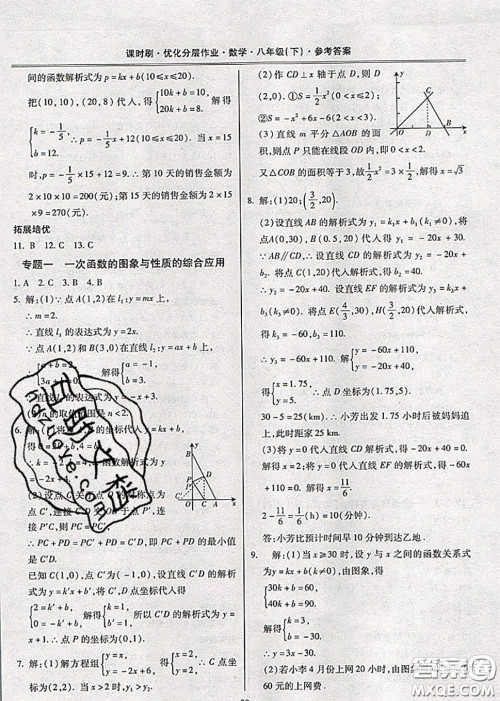 课时刷·优化分层作业·数学·八年级(下)·参考答案
间的函数解析式为 p=kx+b(10≤x≤20).
把(10,10),(20,8)代入得{10k+b=10, 20k+b=8. 解得
{k=-1/5, b=12. ∴p=-1/5x+12(10≤x≤20). 当 x=15
时,p=-1/5×15+12=9. ∴第 10 天的销售金额为
2×10×10=200(元);第 15 天的销售金额为 2×15×
9=270(元).
拓展培优
11. B 12. C 13. C
专题一 一次函数的图象与性质的综合应用
1. A 2. C 3. C 4. D
5. 解:(1)∵点 A(1,2)在 l₁:y=mx 上,
∴m=2.
∴直线 l₁ 的表达式为 y=2x.
∵点 A(1,2)和 B(3,0)在直线 l₂:y=ax+b 上,
解得{a=-1, b=3.
的表达式为 y=-x+3.
6.
代入
(2)设点
点 C',连接
∴PC+PD=PC'+PD=C'D,即 PC+PD 的最小值
是 C'D.
已知 C(1,0),点 C'(-1,0),设直线 C'D 的解析式
为 y=k'x+b',将 C'(-1,0),D(1,2)代入得
{2=k'+b', 0=-k'+b'. 解得{k'=1, b'=1. 所以 C'D 的解析式为
y=x+1. ∴点 P 的坐标为(0,1).
7. 解:(1)解方程组{y=x, y=-2x+6. 得{x=2, y=2. ∴C 点坐标
为(2,2). 当 x>2 时,y₁>y₂.
(2)作 CD⊥x 轴于点 D,则
D(2,0). ①S=1/2x²(0<x≤2);
②S=-x²+6x-6(2<x<3).
(3)直线 m 平分△AOB 的面
积,则点 P 只能在线段 OD 内,即 0<x<2.
又△COB 的面积等于 3,故 1/2x²=3×1/2,解得 x=√3.
8. 解:(1)20;(3/2,20).
(2)设直线 AB 的解析式为 y₁=k₁x+b₁,将点
A(0,30),B(0.5,20)代入得 y₁=-20x+30.
∵AB∥CD,∴设直线 CD 的解析式为 y₂=-20x+
b₂. 将点 C(1,20)代入解析式,得 b₂=40.
∴y₂=-20x+40. 设直线 EF 的解析式为 y₃=k₃x+
b₃,将点 E(3/2,20),H(0.5,30)代入解析式,得
解得{x=1.75, y=5. ∴点 D 坐标为(1.75,5).
30-5=25(km). ∴小芳出发 1.75 小时后被妈妈追
上,此时距家 25 km.
(3)将 y=0 代入直线 CD 的解析式,得-20x+40=
0. 解得 x=2. 将 y=0 代入直线 EF 的解析式,得
-60x+110=0. 解得 x=11/6.
∴2-11/6=1/6(h)=10(分钟).
答:小芳比预计时间早 10 分钟到达乙地.
9. 解:(1)当 x≥30 时,设 y 与 x 之间的函数关系式
为 y=kx+b,由图象,得
{30k+b=60, 40k+b=90. 解得{k=3, b=-30.
∴y=3x-30.
(2)若小李 4 月份上网 20 小时,由图象得,他应付
60 元的上网费.
答案圈
MXQE.COM